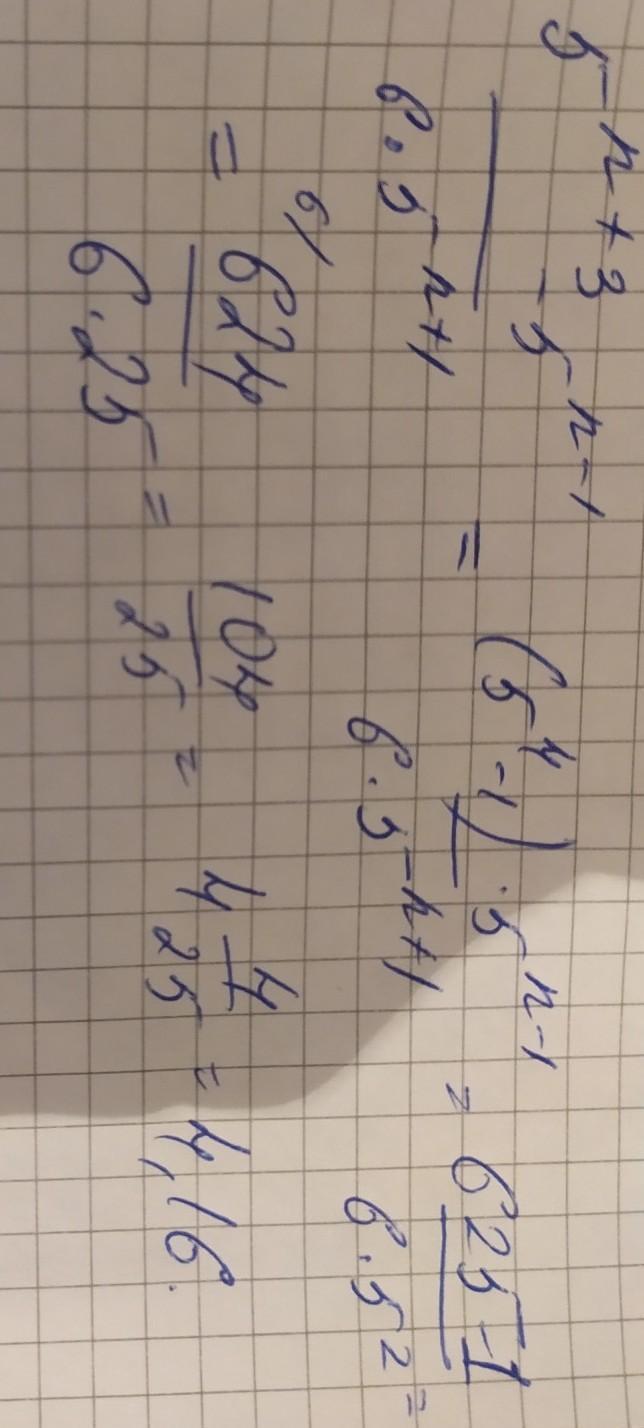 (5^(n+3) - 5^(n-1)) / (6·5^(n+1)) = ((5^4 - 1)·5^(n-1)) / (6·5^(n+1)) = (625-1) / (6·5^2) =
= 6/ 624 / (6·25) = 104/25 = 4 4/25 = 4,16.